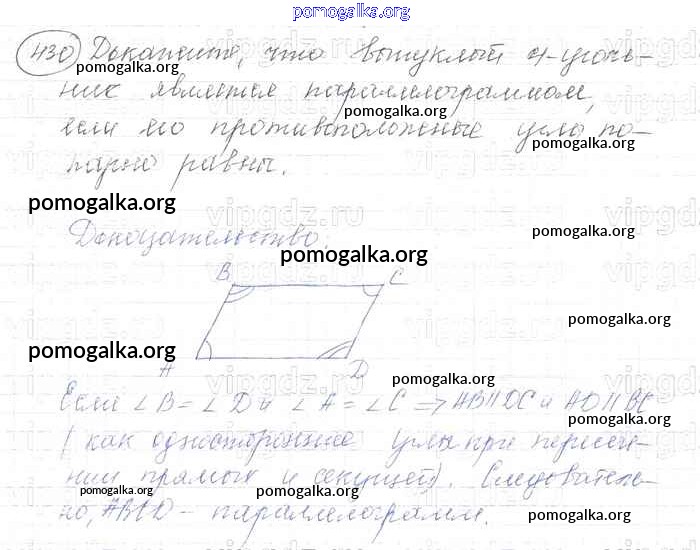 pomogalka.org
430 Докажите, что выпуклый 4-уголь-
pomogalka.org
ник является параллелограммом,
pomogalka.org
если его противоположные углы по-
pomogalka.org
парно равны.
vipgdz.ru
pomogalka.org
pomogalka.org
Доказательство:
pomogalka.org
B C
pomogalka.org
pomogalka.org
A D
pomogalka.org
Если ∠B = ∠D и ∠A = ∠C ⇒ AB || DC и AD || BC
(как односторонние углы при пересече-
нии прямых и секущей). Следователь-
pomogalka.org pomogalka.org
но, ABCD - параллелограмм.
pomogalka.org